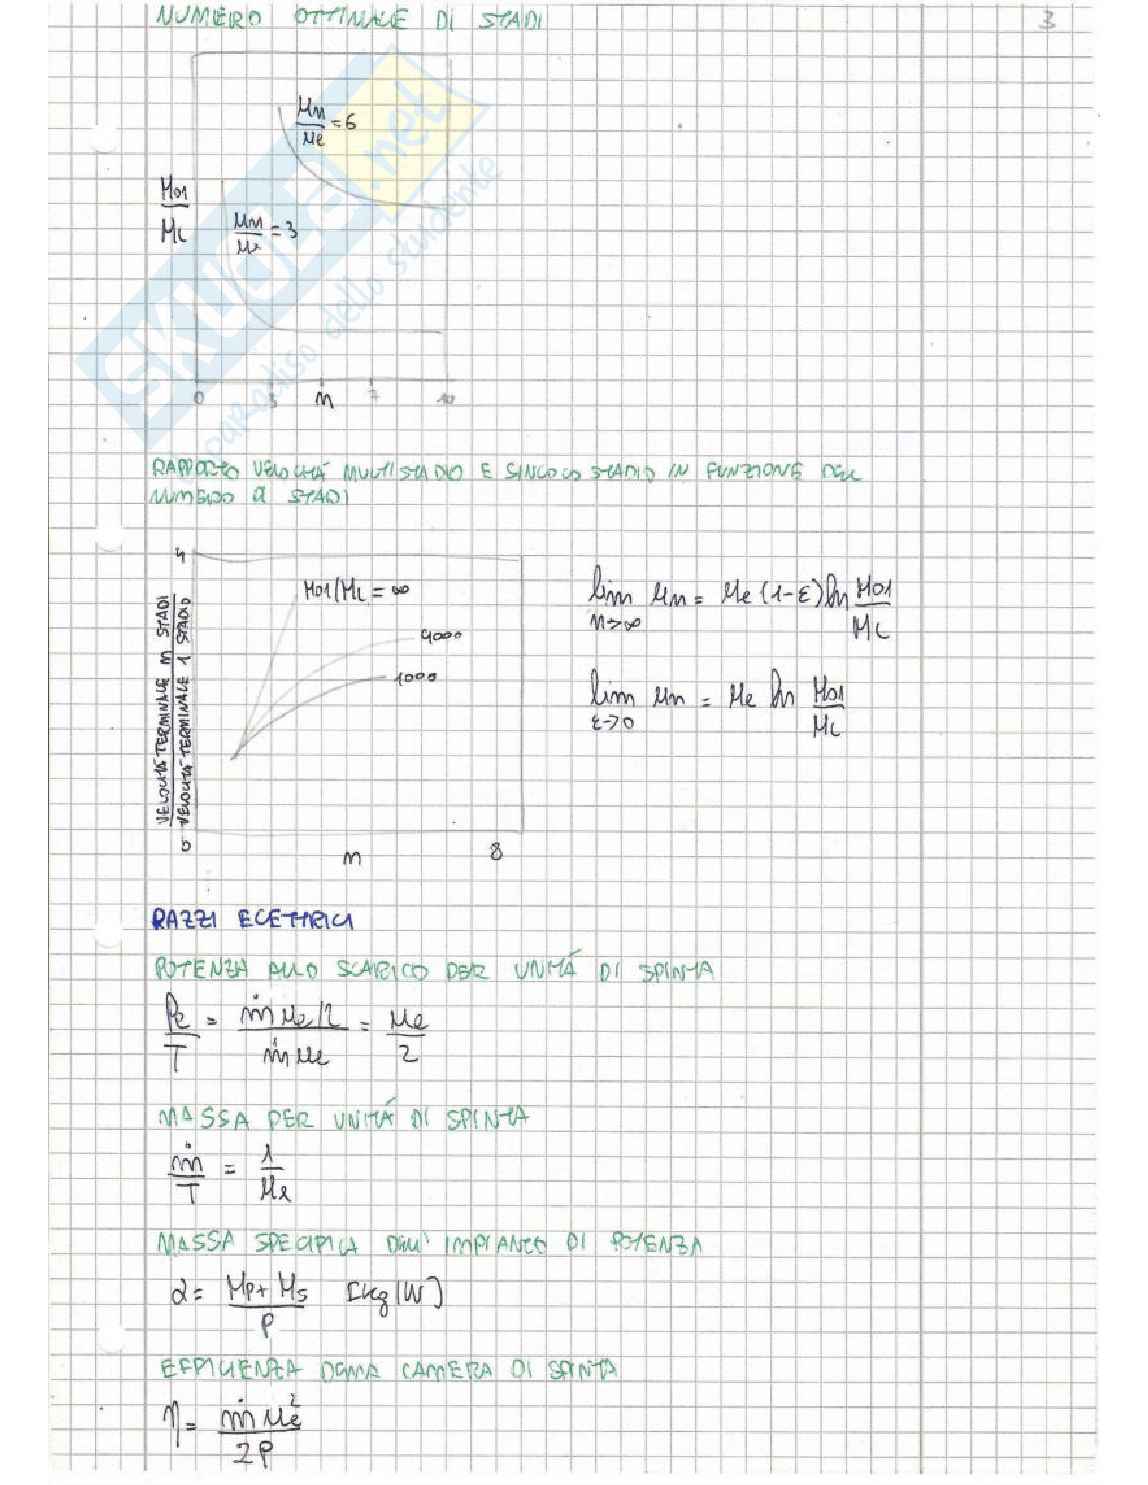 NUMERO OTTIMALE DI STADI
3
un/ue = 6
M01/ML
un/ue = 3
0 3 n 7 10
SKUOLA.net
paradiso dello studente
RAPPORTO VELOCITÁ MULTISTADIO E SINGOLO STADIO IN FUNZIONE DEL
NUMERO DI STADI
4
M01/ML = ∞
4000
1000
VELOCITÁ TERMINALE n STADI
VELOCITÁ TERMINALE 1 STADIO
0 n 8
lim n→∞ un = ue (1-ε) ln M01/ML
lim ε→0 un = ue ln M01/ML
RAZZI ELETTRICI
POTENZA ALLO SCARICO PER UNITÁ DI SPINTA
Pe/T = ṁ ue/2 / ṁ ue = ue/2
MASSA PER UNITÁ DI SPINTA
ṁ/T = 1/ue
MASSA SPECIFICA DELL' IMPIANTO DI POTENZA
α = Mp + Ms / P [kg/W]
EFFICIENZA DELLA CAMERA DI SPINTA
η = ṁ ue² / 2P